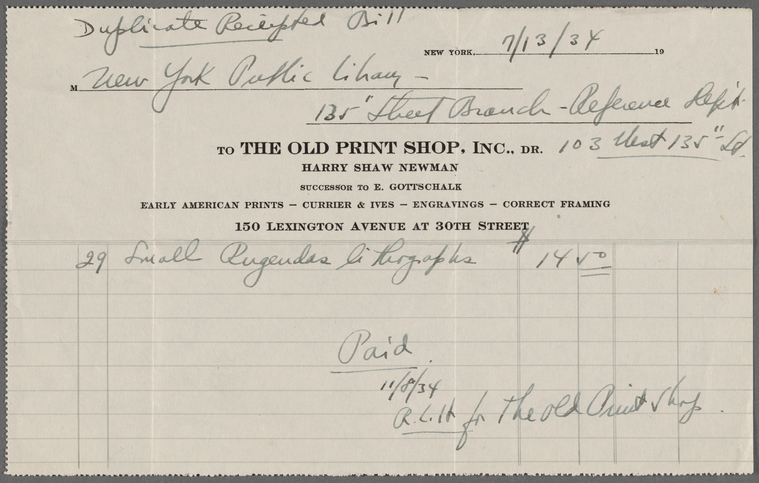 Duplicate Receipted Bill
NEW YORK, 7/13/34 19
M New York Public Library -
135" Street Branch - Reference Dept.
TO THE OLD PRINT SHOP, INC., DR. 103 West 135" St.
HARRY SHAW NEWMAN
SUCCESSOR TO E. GOTTSCHALK
EARLY AMERICAN PRINTS — CURRIER & IVES — ENGRAVINGS — CORRECT FRAMING
150 LEXINGTON AVENUE AT 30TH STREET
29 Small Rugendas lithographs $ 14 50
Paid
11/8/34
R.L.H for The Old Print Shop.